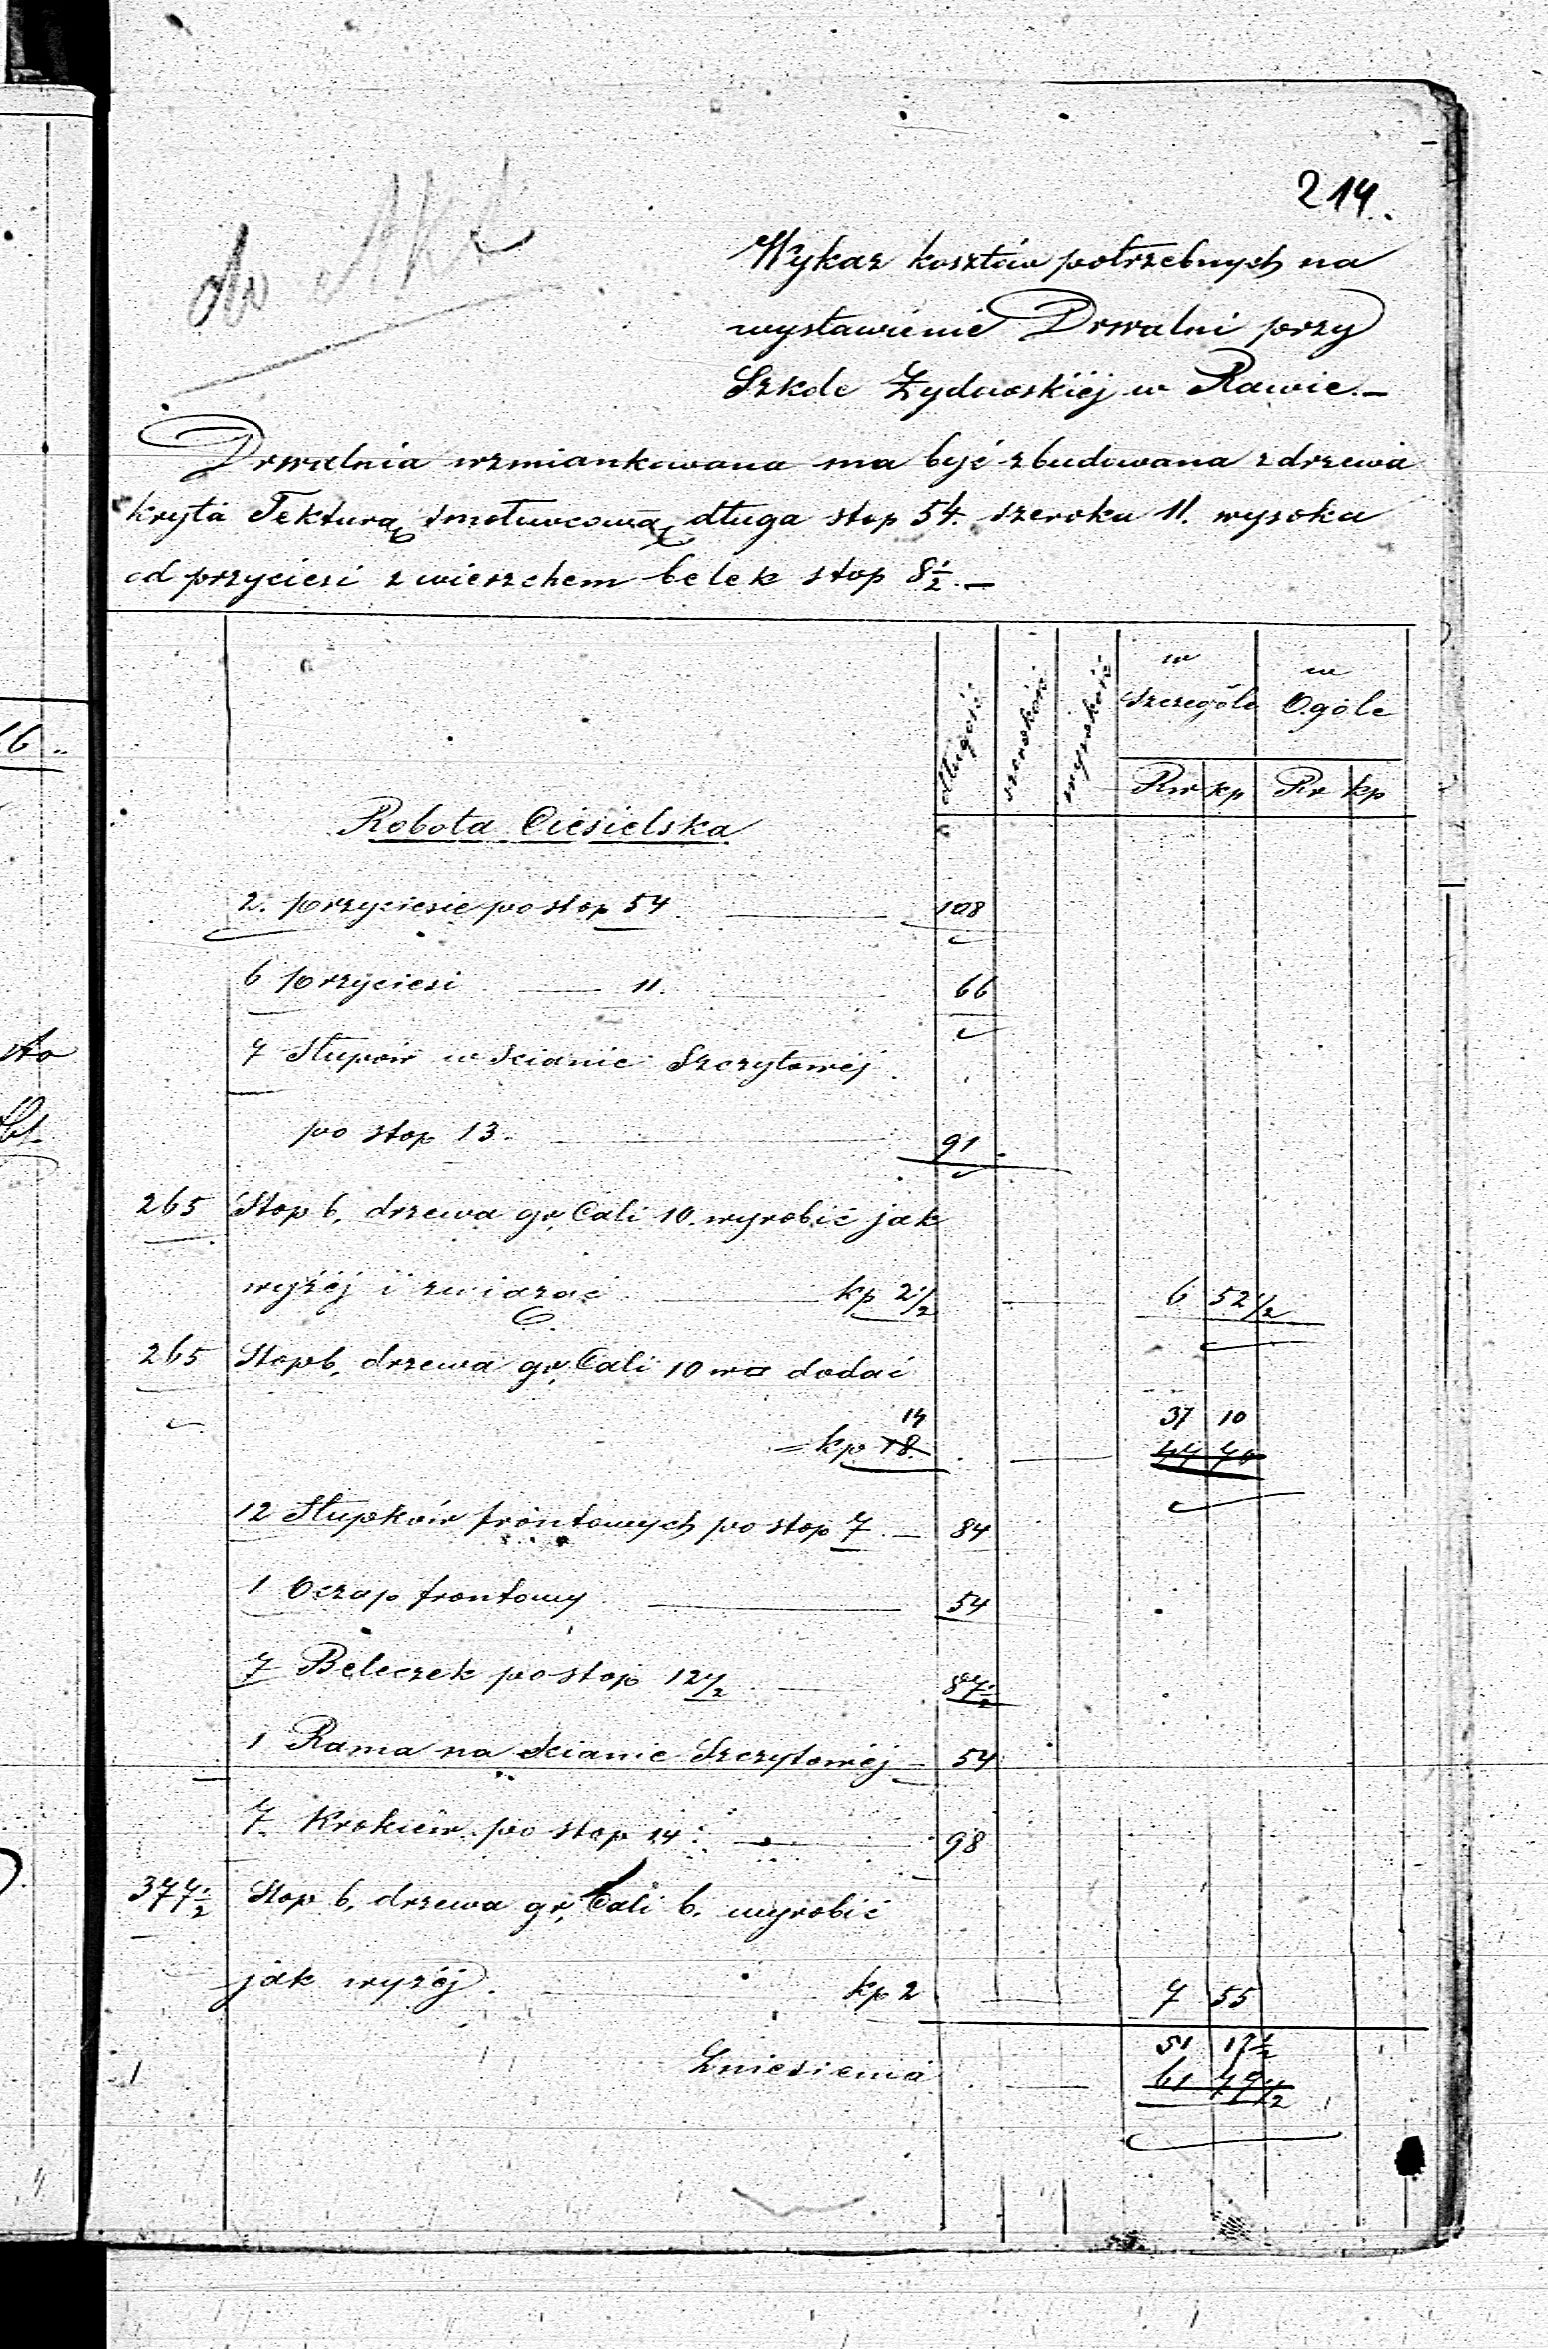 214.
do Akt
Wykaz kosztów potrzebnych na
wystawienie Drwalni przy
Szkole Żydowskiéj w Rawie.—
Drwalnia wzmiankowana ma być zbudowana z drzewa
kryta Tekturą smołowcową długa stop 54. szeroka 11. wysoka
od przyciesi z wierzchem belek stop 8½.—
długość szerokość wysokość w Szczególe w Ogóle
Rs kp Rs kp
Robota Ciesielska
2. przyciesie po stop 54 108
6 przyciesi — 11. 66
7 Słupów w Scianie Szczytowéj
po stop 13. 91
265 Stop b. drzewa gr. Cali 10. wyrobić jak
wyżéj i związać kp 2½ 6 52½
265 Stop b. drzewa gr. Cali 10 wa dodać
14 37 10
= kp 18. 47 70
12 Słupków frontowych po stop 7. — 84
1 Oczap frontowy 54
7 Beleczek po stop 12½ 87½
1 Rama na Scianie Szczytowéj — 54
7 Krokiew po stop 14. 98
377½ Stop b. drzewa gr. Cali 6. wyrobić
jak wyżéj. kp 2 7 55
51 17½
Zniesienia 61 79½
16 "